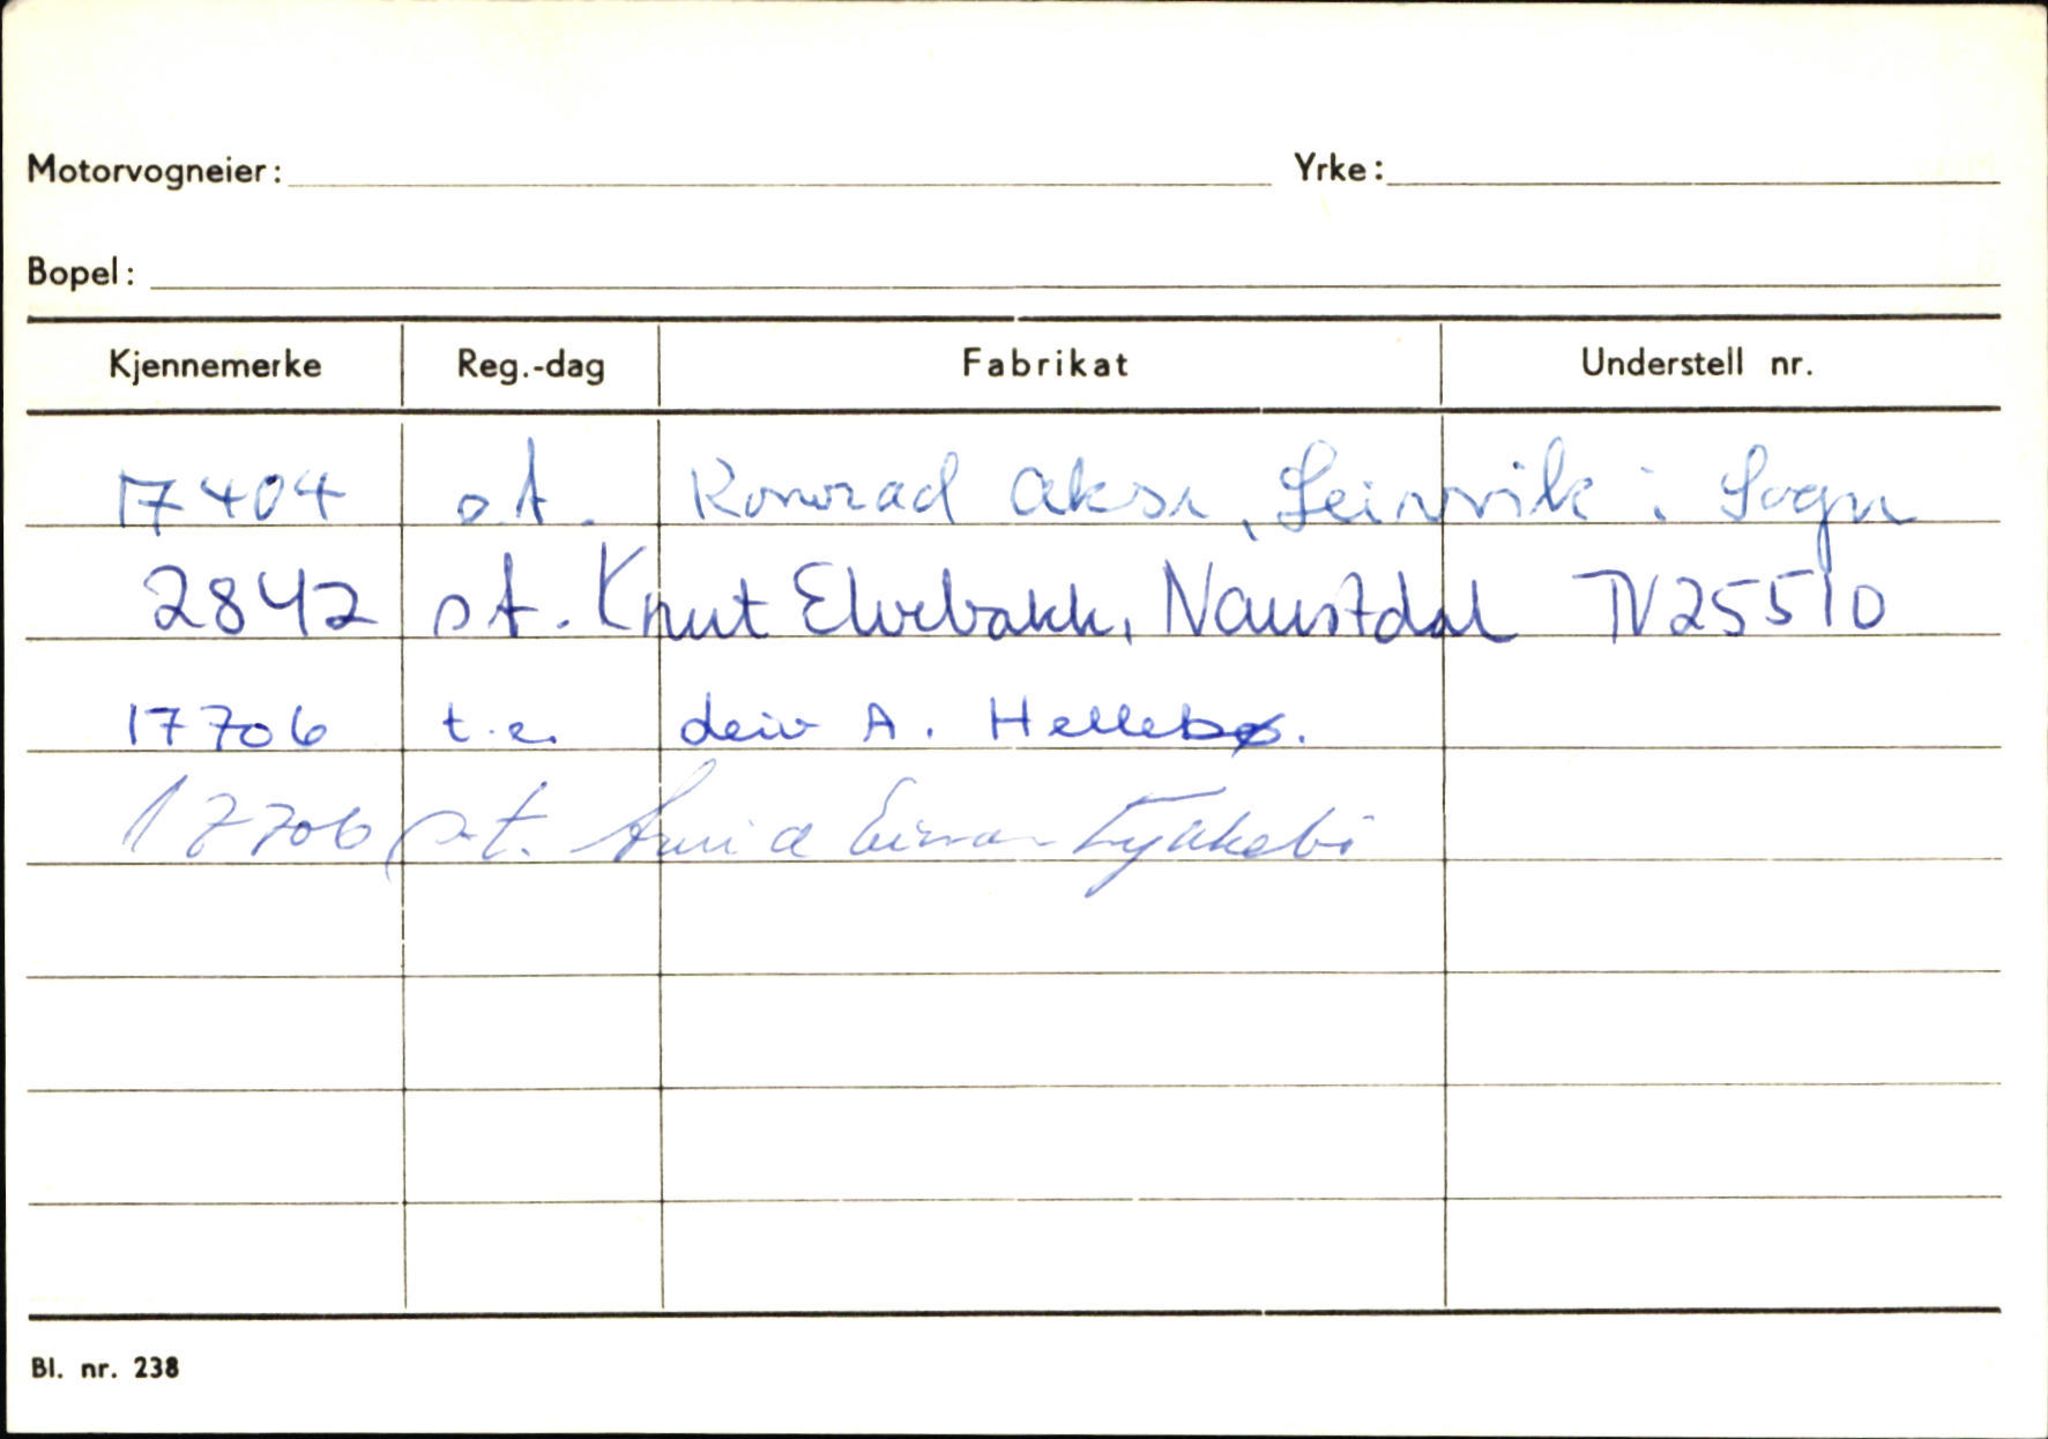 Motorvogneier: Yrke:
Bopel:
Kjennemerke Reg.-dag Fabrikat Understell nr.
17404 o.t. Konrad Aksn, Leirvik i Sogn
2842 o.t. Knut Elvebakk, Naustdal TV25510
17706 t.e. A. Hellebø.
17706 o.t. Einar
Bl. nr. 238